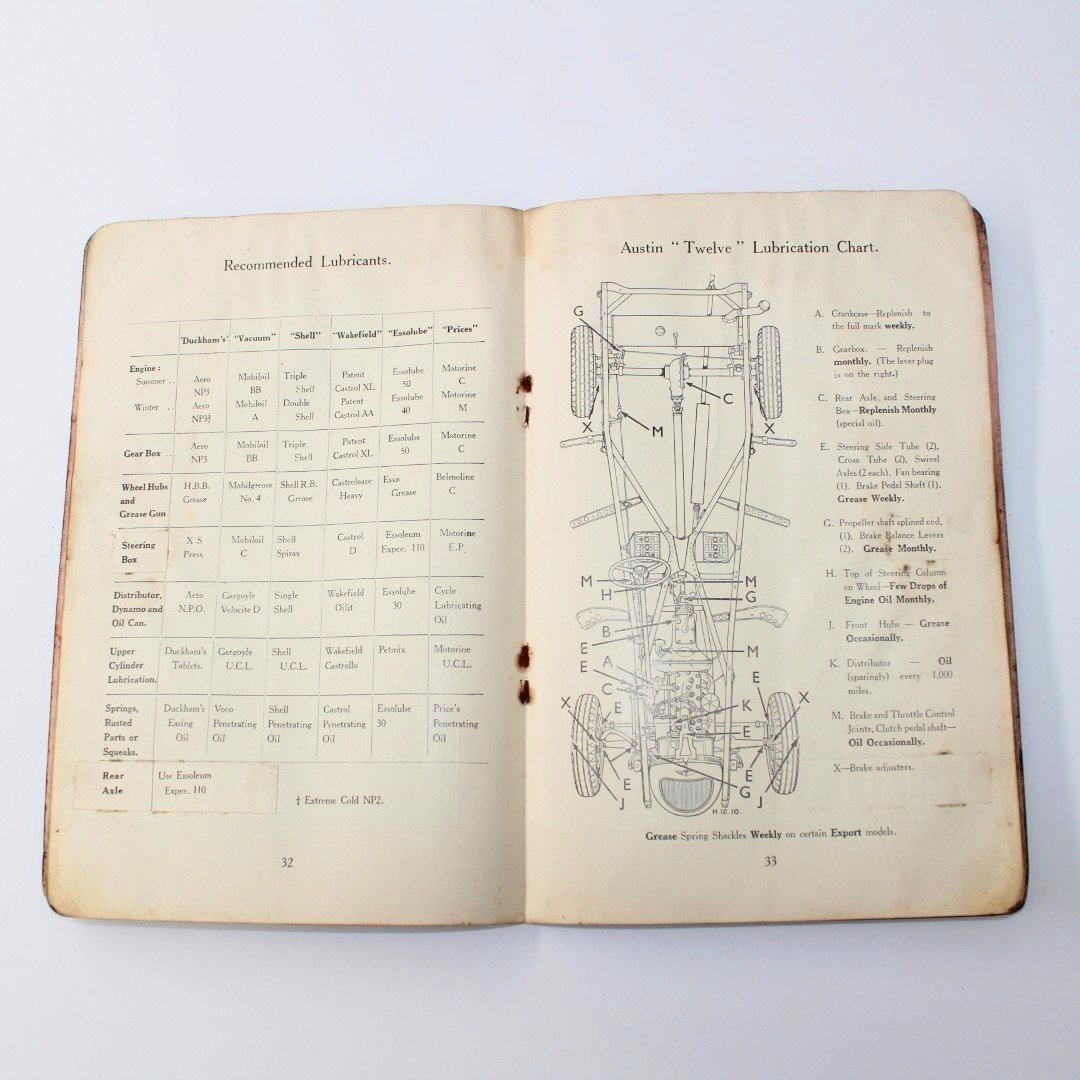 Recommended Lubricants.
"Duckham's" "Vacuum" "Shell" "Wakefield" "Essolube" "Prices"
Engine :
Summer .. Aero NP5 Mobiloil BB Triple Shell Patent Castrol XL Essolube 50 Motorine C
Winter .. Aero NP3† Mobiloil A Double Shell Patent Castrol AA Essolube 40 Motorine M
Gear Box .. Aero NP3 Mobiloil BB Triple Shell Patent Castrol XL Essolube 50 Motorine C
Wheel Hubs and Grease Gun H.B.B. Grease Mobilgrease No. 4 Shell R.B. Grease Castrolease Heavy Esso Grease Belmoline C
Steering Box X S Press Mobiloil C Shell Spirax Castrol D Essoleum Expee. 110 Motorine E.P.
Distributor, Dynamo and Oil Can. Aero N.P.O. Gargoyle Velocite D Single Shell Wakefield Oilit Essolube 30 Cycle Lubricating Oil
Upper Cylinder Lubrication. Duckham's Tablets. Gargoyle U.C.L. Shell U.C.L. Wakefield Castrollo Petmix Motorine U.C.L.
Springs, Rusted Parts or Squeaks. Duckham's Easing Oil Voco Penetrating Oil Shell Penetrating Oil Castrol Penetrating Oil Essolube 30 Price's Penetrating Oil
Rear Axle Use Essoleum Expee. 110
† Extreme Cold NP2.
32
Austin "Twelve" Lubrication Chart.
G
C
X
M
X
M
M
H
G
B
E
M
E
A
E
C
X
E
X
K
E
E
E
J
G
J
H.12.10.
A. Crankcase—Replenish to
the full mark weekly.
B. Gearbox. — Replenish
monthly. (The lever plug
is on the right.)
C. Rear Axle and Steering
Box—Replenish Monthly
(special oil).
E. Steering Side Tube (2),
Cross Tube (2), Swivel
Axles (2 each). Fan bearing
(1). Brake Pedal Shaft (1).
Grease Weekly.
G. Propeller shaft splined end,
(1). Brake Balance Levers
(2). Grease Monthly.
H. Top of Steering Column
on Wheel—Few Drops of
Engine Oil Monthly.
J. Front Hubs — Grease
Occasionally.
K. Distributor — Oil
(sparingly) every 1,000
miles.
M. Brake and Throttle Control
Joints, Clutch pedal shaft—
Oil Occasionally.
X—Brake adjusters.
Grease Spring Shackles Weekly on certain Export models.
33